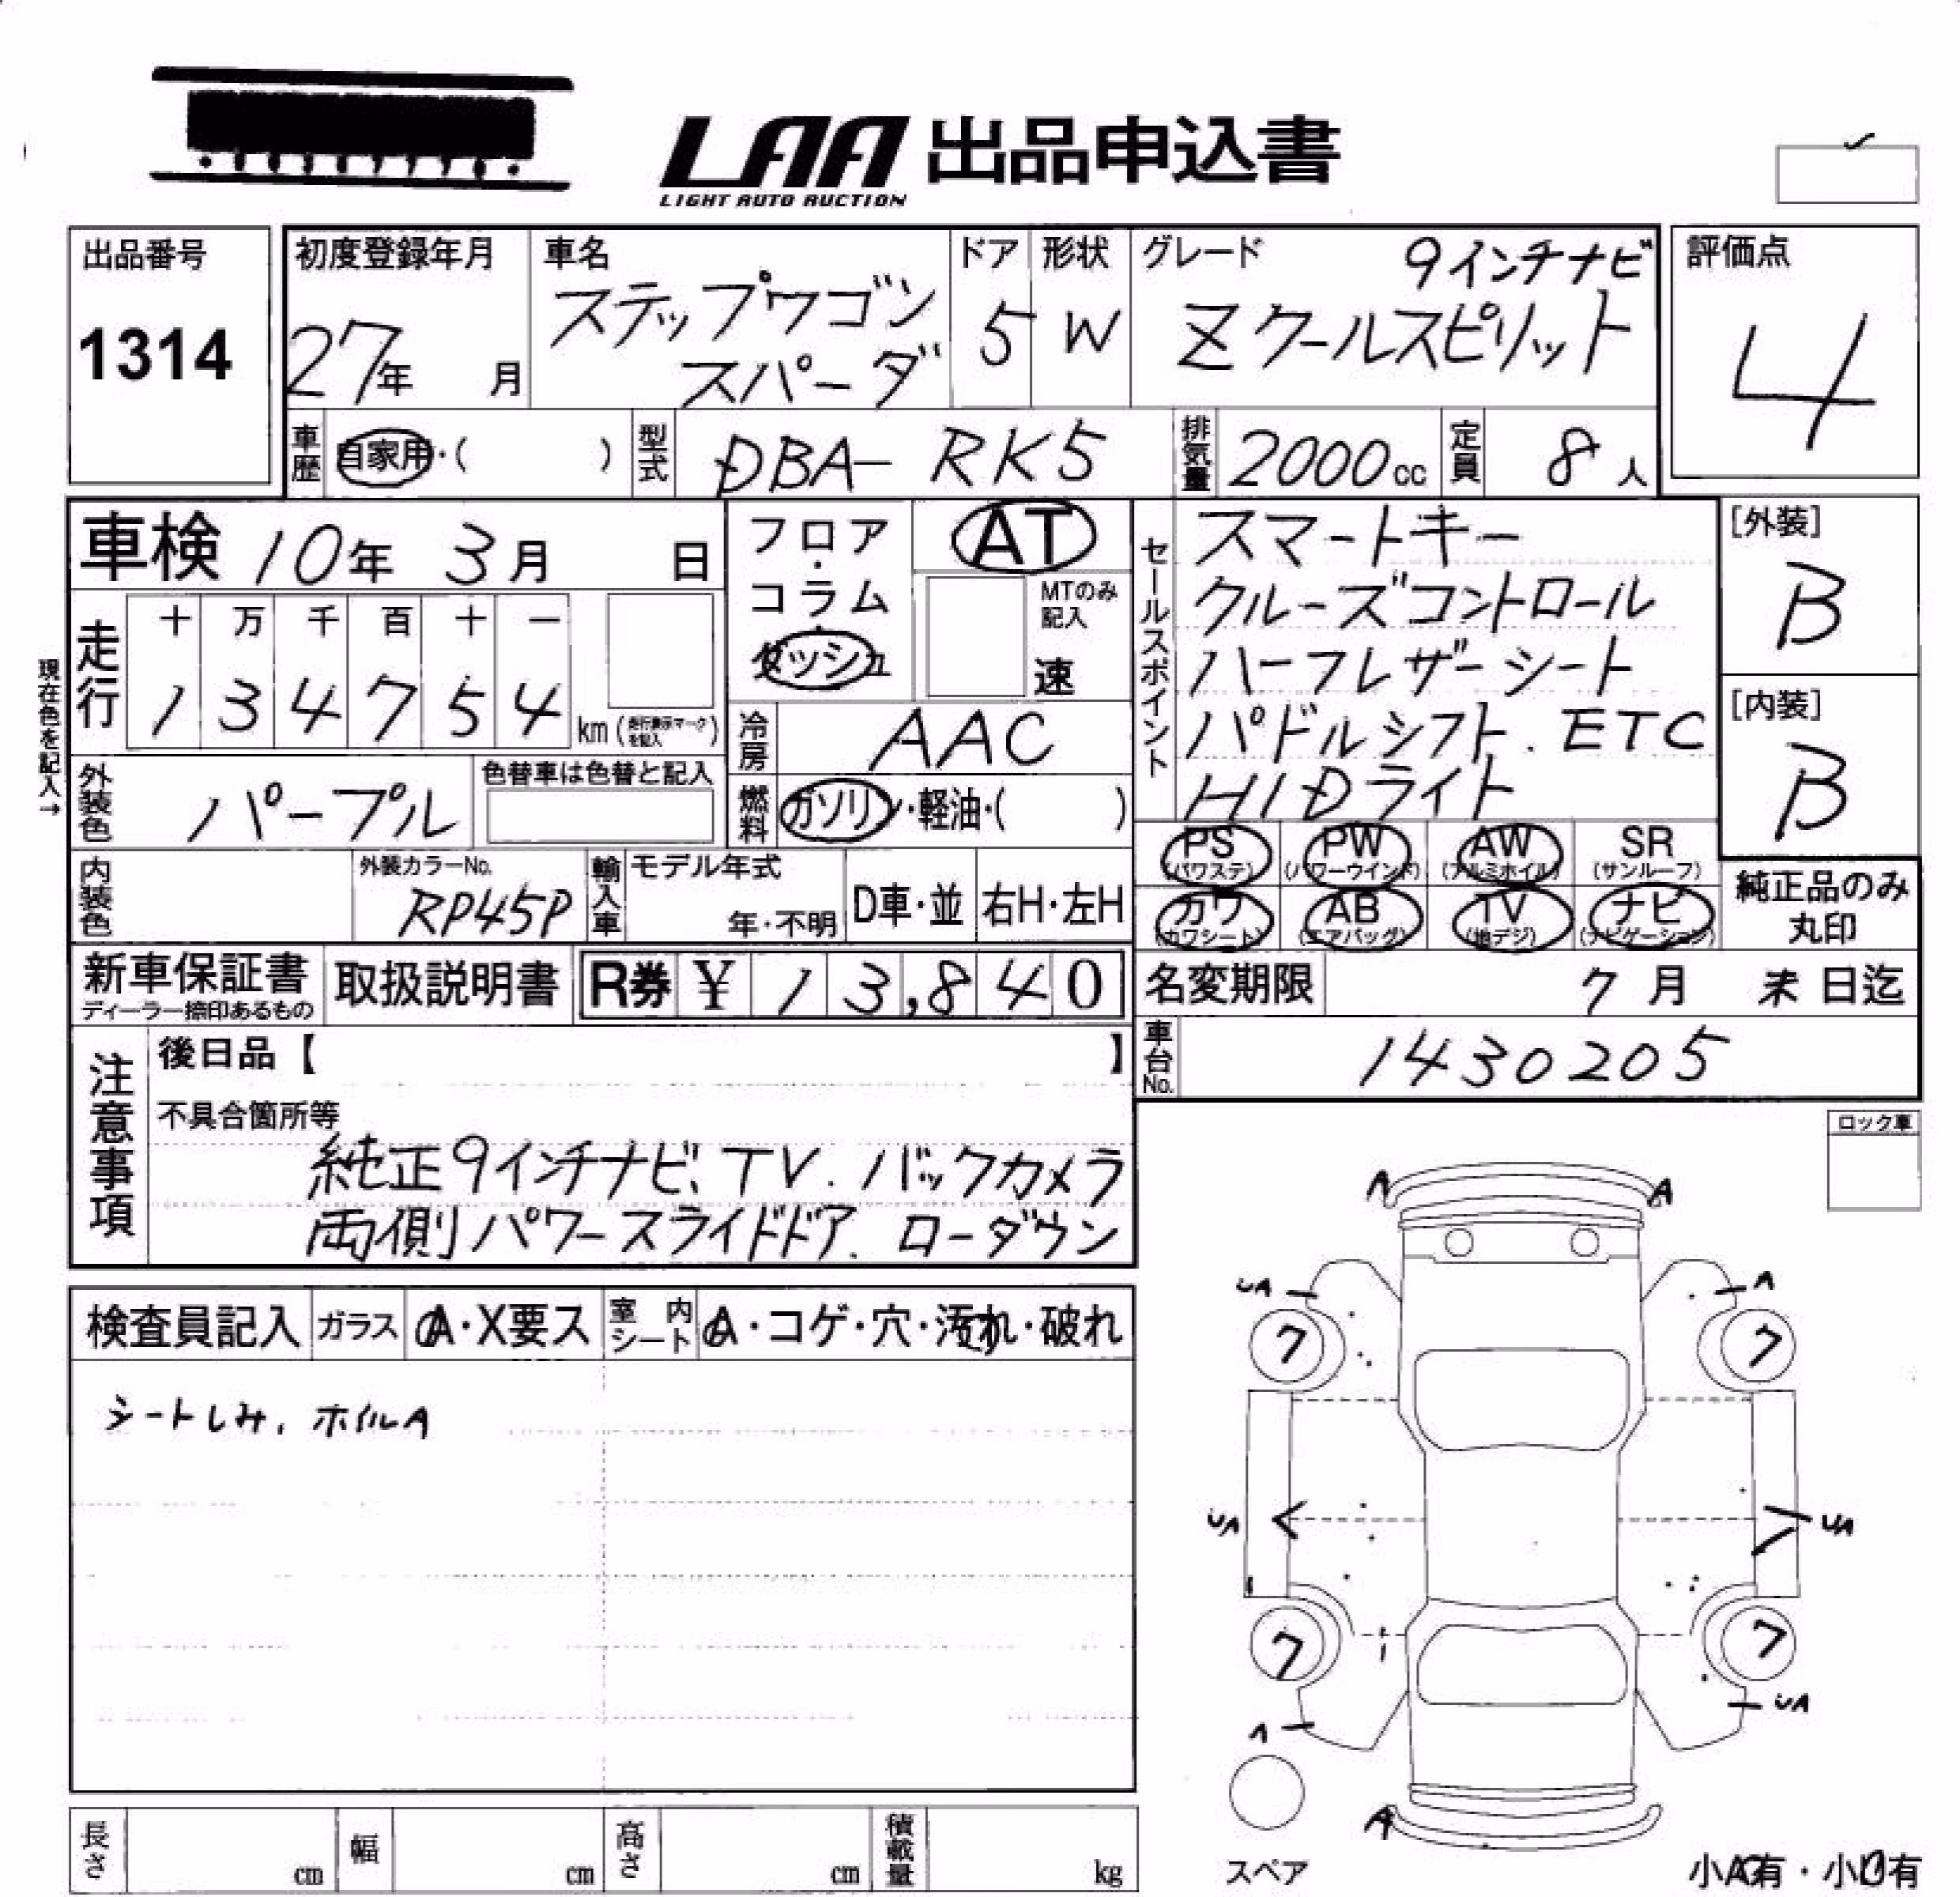 LAA 出品申込書
LIGHT AUTO AUCTION
出品番号
1314
初度登録年月
27年 月
車名
ステップワゴン
スパーダ
ドア
5
形状
W
グレード 9インチナビ
Zクールスピリット
評価点
4
車歴 自家用・( )
型式 DBA-RK5
排気量 2000cc
定員 8人
車検 10年 3月 日
フロア・コラム・ダッシュ
AT
MTのみ記入
速
セールスポイント
スマートキー
クルーズコントロール
ハーフレザーシート
パドルシフト. ETC
HIDライト
[外装]
B
[内装]
B
現在色を記入→
走行
十 万 千 百 十 一
1 3 4 7 5 4 km (走行表示マークを記入)
冷房 AAC
外装色 パープル
色替車は色替と記入
燃料 ガソリン・軽油・( )
PS (パワステ) PW (パワーウインド) AW (アルミホイル) SR (サンルーフ)
カワ (カワシート) AB (エアバッグ) TV (地デジ) ナビ (ナビゲーション)
純正品のみ
丸印
内装色
外装カラーNo.
RP45P
輸入車
モデル年式
年・不明
D車・並 右H・左H
新車保証書
ディーラー捺印あるもの
取扱説明書
R券 ¥ 13,840
名変期限 7月 末日迄
車台No. 1430205
注意事項
後日品【 】
不具合箇所等
純正9インチナビ、TV. バックカメラ
両側パワースライドドア. ローダウン
ロック車
検査員記入
ガラス A・X要ス
室内シート A・コゲ・穴・汚れ・破れ
シートしみ, ホイルA
A A
UA A
7 7
UA UA
7 7
A UA
A
スペア
小A有・小U有
長さ cm
幅 cm
高さ cm
積載量 kg